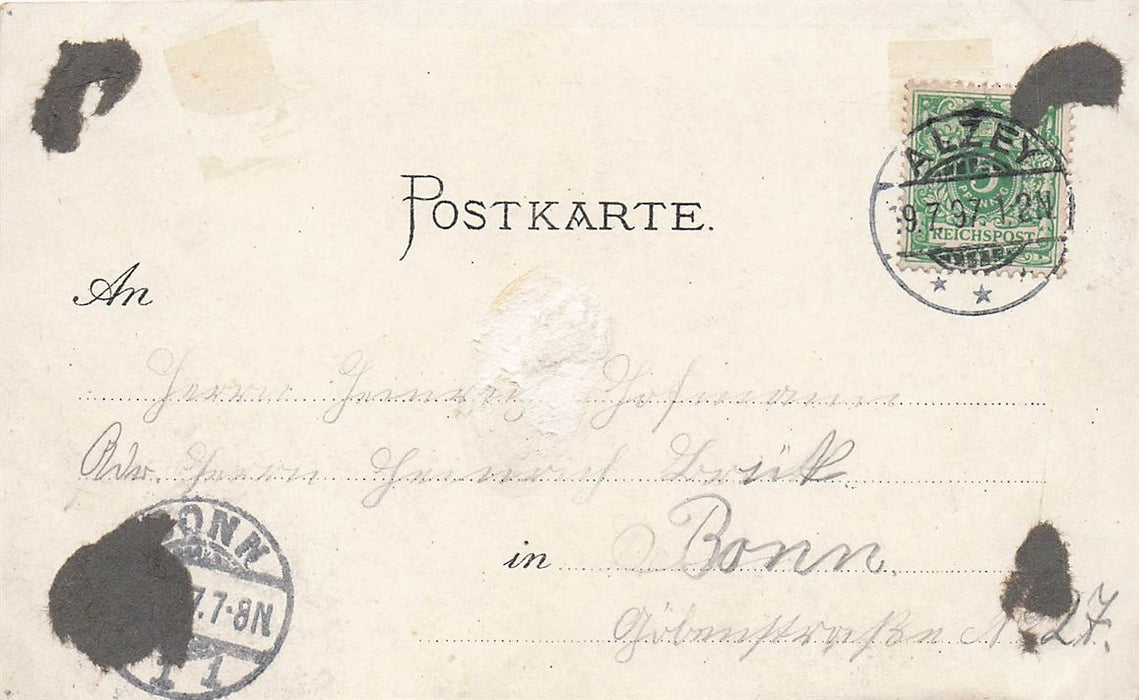 POSTKARTE.
ALZEY
5
PFENNIG
9.7.97.1-2N
REICHSPOST
An
Herrn Heinrich Hofmann
Adr. Herrn Heinrich Brück
in Bonn.
Göbenstraße No 27.
BONN
7.7-8N
1 1